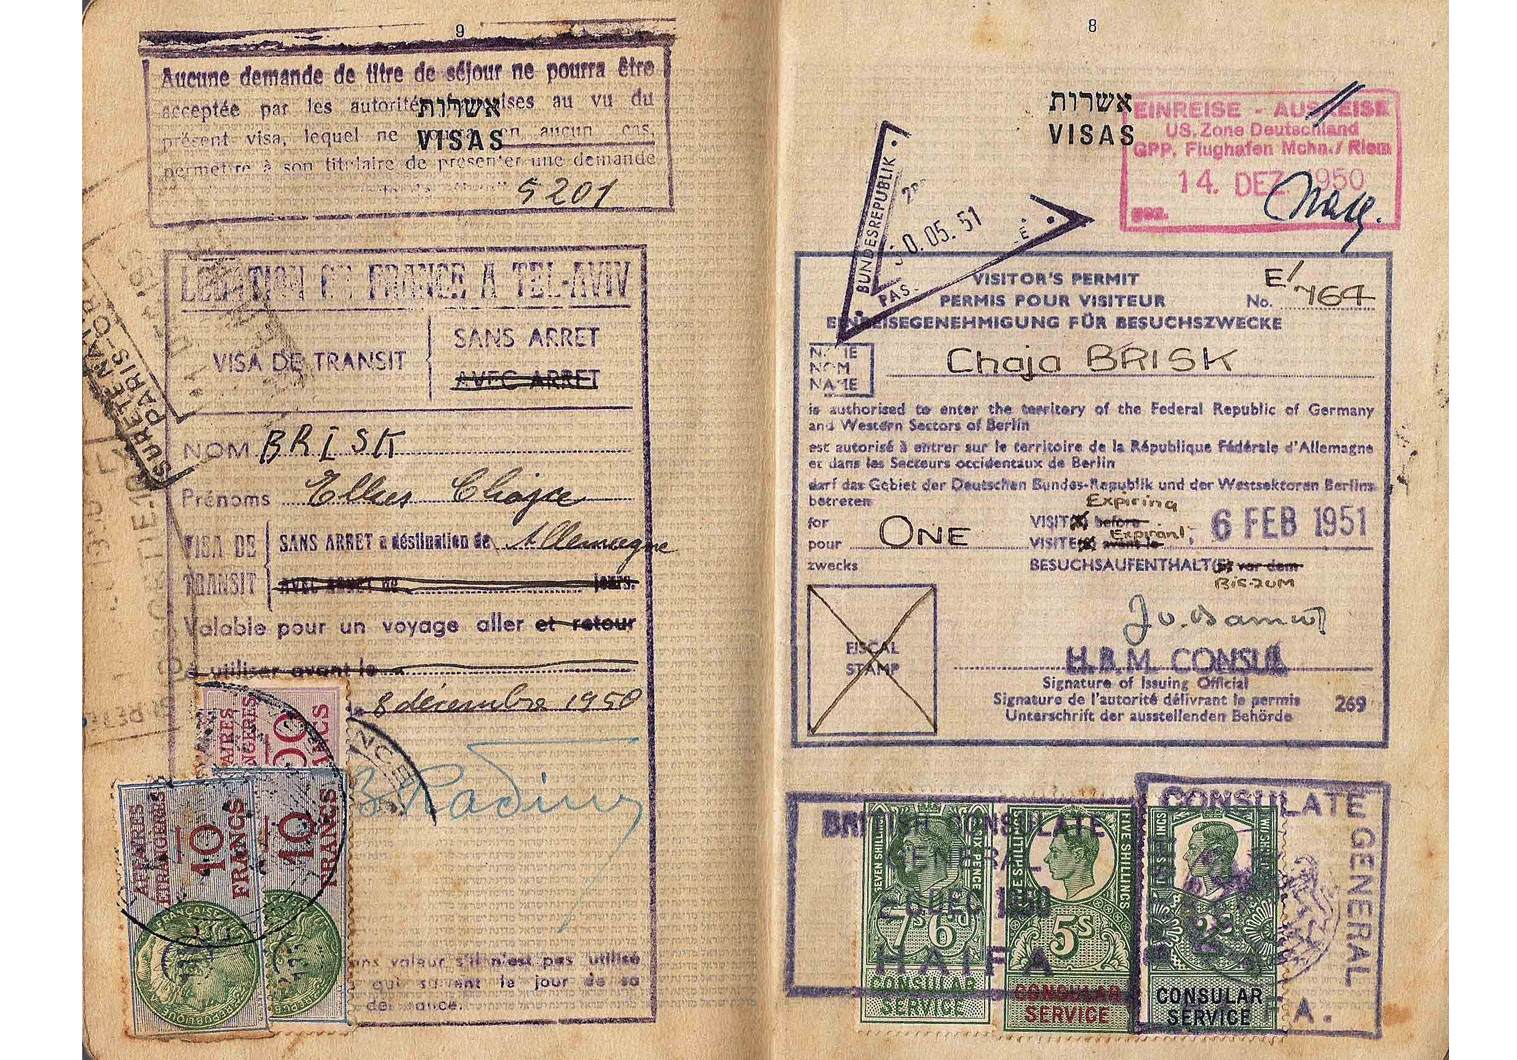 9
Aucune demande de titre de séjour ne pourra être
acceptée par les autorités au vu du
présent visa, lequel ne pourra en aucun cas,
permettre à son titulaire de présenter une demande
אשרות
VISAS
5201
LEGATION DE FRANCE A TEL-AVIV
VISA DE TRANSIT
SANS ARRET
AVEC ARRET
NOM BRISK
Prénoms Elkes Chajce
VISA DE TRANSIT
SANS ARRET a déstination de Allemagne
AVEC ARRET DE jours.
Valable pour un voyage aller et retour
à utiliser avant le
8 décembre 1950
SURETE NATIONALE
PARIS-
10 FRANCS
AFFAIRES ETRANGERES
10 FRANCS
sans valeur s'il n'est pas utilisé
qui suivent le jour de sa
8
אשרות
VISAS
EINREISE - AUSREISE
US. Zone Deutschland
GPP. Flughafen Mchn./ Riem
14. DEZ 1950
gez.
BUNDESREPUBLIK
0.05.51
PAS
VISITOR'S PERMIT
PERMIS POUR VISITEUR
EINREISEGENEHMIGUNG FÜR BESUCHSZWECKE
No. E/764
NAME
NOM
NAME
Chaja BRISK
is authorised to enter the territory of the Federal Republic of Germany
and Western Sectors of Berlin
est autorisé à entrer sur le territoire de la République Fédérale d'Allemagne
et dans les Secteurs occidentaux de Berlin
darf das Gebiet der Deutschen Bundes-Republik und der Westsektoren Berlins
betreten
for
pour
zwecks
ONE
Expiring
VISIT(S) before
Expirant
VISITE(S) avant le
6 FEB 1951
BESUCHSAUFENTHALT(E) vor dem
Bis zum
FISCAL
STAMP
H.B.M. CONSUL
Signature of Issuing Official
Signature de l'autorité délivrant le permis
Unterschrift der ausstellenden Behörde
269
BRITISH CONSULATE
GENERAL
DEC 1950
HAIFA
SEVEN SHILLINGS SIX PENCE
7s 6
CONSULAR
SERVICE
FIVE SHILLINGS
5s
CONSULAR
SERVICE
2s
CONSULAR
SERVICE
CONSULATE
GENERAL